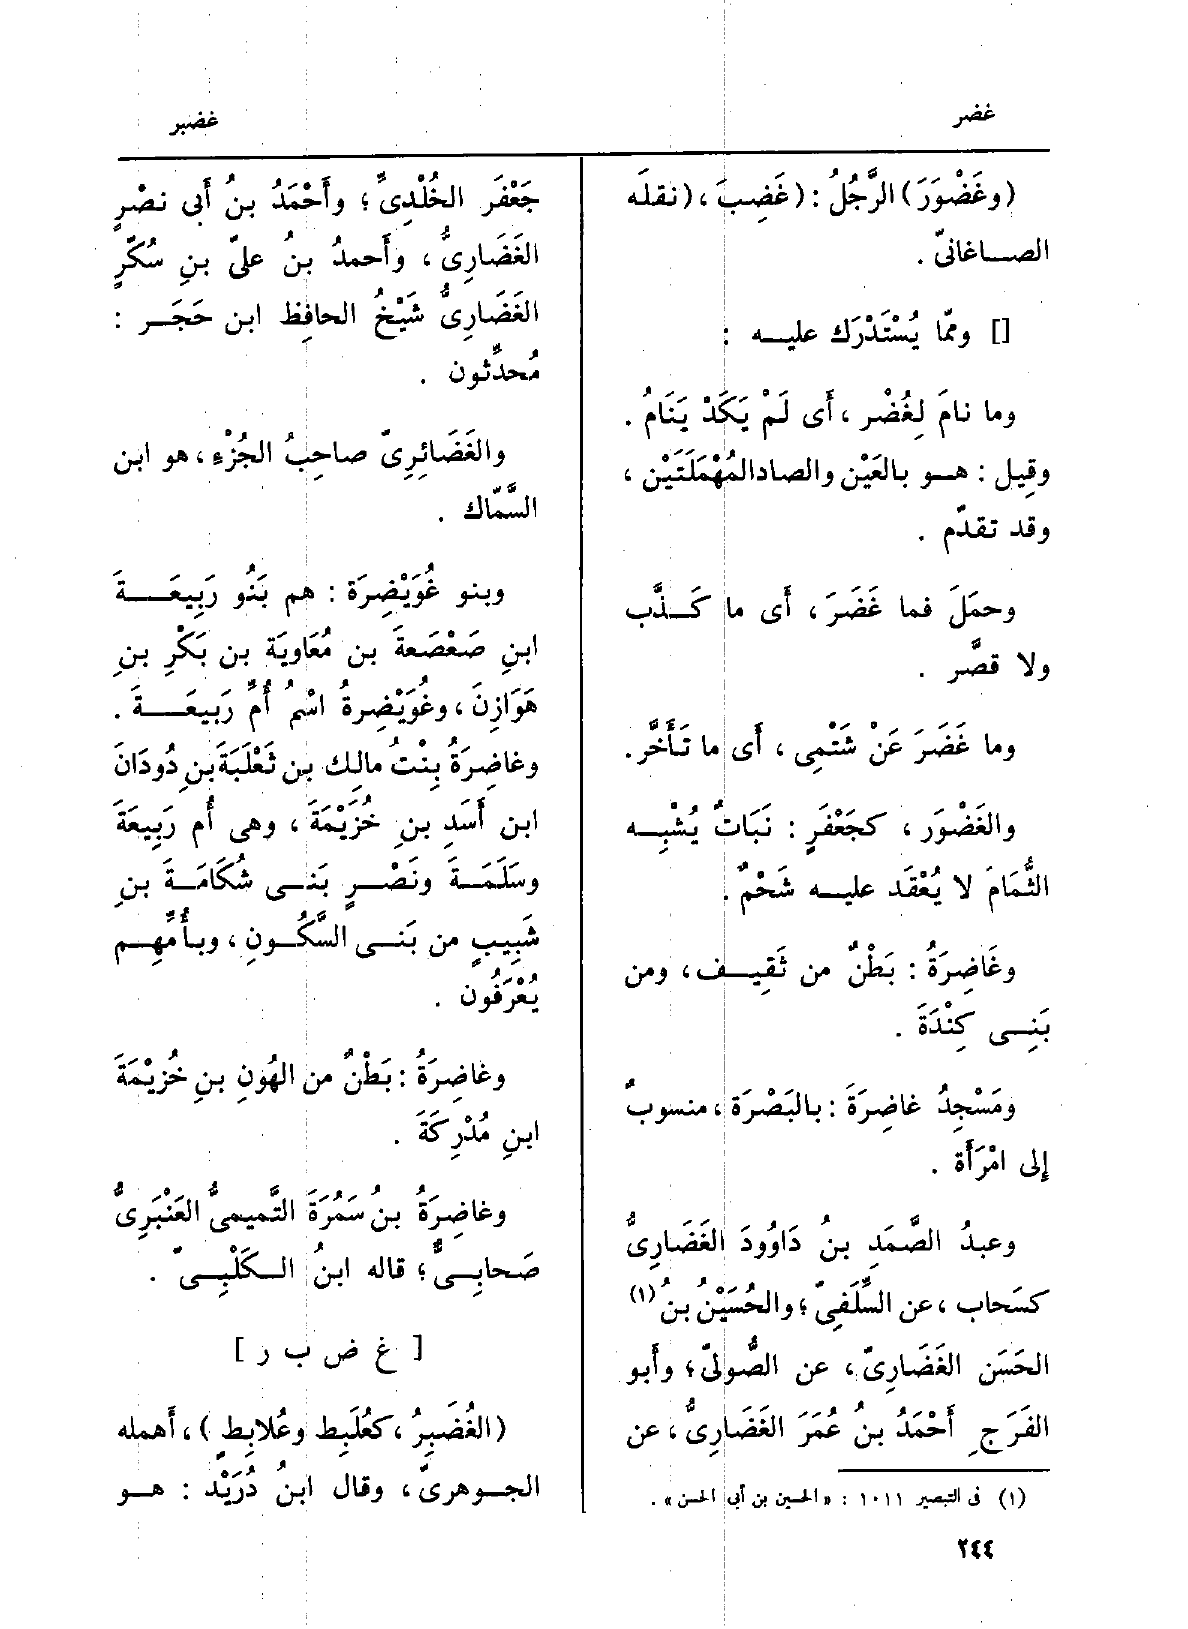 غضر
غضبر
(وغَضْوَرَ) الرَّجُلُ : (غَضِبَ ، (نقلَه
الصــاغانىّ .
[] وممّا يُسْتَدْرَك عليــه :
وما نامَ لِغُضْر ، أَى لَمْ يَكَدْ يَنَامُ .
وقِيل : هــو بالعَيْن والصادالمُهْمَلَتَيْن ،
وقد تقدّم .
وحمَلَ فما غَضَرَ ، أَى ما كَــذَّب
ولا قصَّر .
وما غَضَرَ عَنْ شَتْمِى ، أَى ما تَأَخَّر .
والغَضْوَر ، كجَعْفَرٍ : نَبَاتٌ يُشْبِــه
الثُّمَامَ لا يُعْقَد عليــه شَحْمٌ .
وغَاضِرَةُ : بَطْنٌ من ثَقِيــف ، ومن
بَنِــى كِنْدَةَ .
ومَسْجِدُ غاضِرَةَ : بالبَصْرَة ، منسوبٌ
إلى امْرَأَة .
وعبدُ الصَّمَدِ بنُ دَاوُودَ الغَضَارِىُّ
كسَحاب ، عن السِّلَفِىّ ؛ والحُسَيْنُ بنُ (١)
الحَسَن الغَضَارِىّ ، عن الصُّولىّ ؛ وأَبو
الفَرَجِ أَحْمَدُ بنُ عُمَرَ الغَضَارِىُّ ، عن
(١) فى التبصير ١٠١١ : « الحسين بن أبى الحسن » .
٢٤٤
جَعْفَر الخُلْدِىِّ ؛ وأَحْمَدُ بنُ أَبى نصْرٍ
الغَضَارِىُّ ، وأَحمدُ بنُ علىّ بنِ سُكَّرٍ
الغَضَارِىُّ شَيْخُ الحافِظ ابن حَجَــر :
مُحدِّثون .
والغَضَائِرِىّ صاحِبُ الجُزْءِ ، هو ابن
السَّمّاك .
وبنو غُوَيْضِرَة : هم بَنُو رَبِيعَــةَ
ابنِ صَعْصَعةَ بن مُعَاوِيَة بن بَكْرِ بنِ
هَوَازِنَ ، وغُوَيْضِرةُ اسْمُ أُمِّ رَبِيعَــةَ .
وغاضِرَةُ بِنْتُ مالِك بن ثَعْلَبَةَ بنِ دُودَانَ
ابن أَسَدِ بنِ خُزَيْمَةَ ، وهى أُم رَبِيعَةَ
وسَلَمَــةَ ونَصْــرٍ بَنــى شُكَامَــةَ بنِ
شَبِيبٍ من بَنــى السَّكُــونِ ، وبــأُمِّهِــم
يُعْرَفُون .
وغاضِرَةُ : بَطْنٌ من الهُونِ بنِ خُزَيْمَةَ
ابنِ مُدْرِكَةَ .
وغاضِرَةُ بنُ سَمُرَةَ التَّمِيمىُّ العَنْبَرِىُّ
صَحابِــىٌّ ؛ قاله ابنُ الــكَلْبِــىّ .
[ غ ض ب ر ]
(الغُضَبِرُ ، كعُلَبِط وعُلابِطٍ ) ، أَهمله
الجــوهرىّ ، وقال ابنُ دُرَيْد : هــو